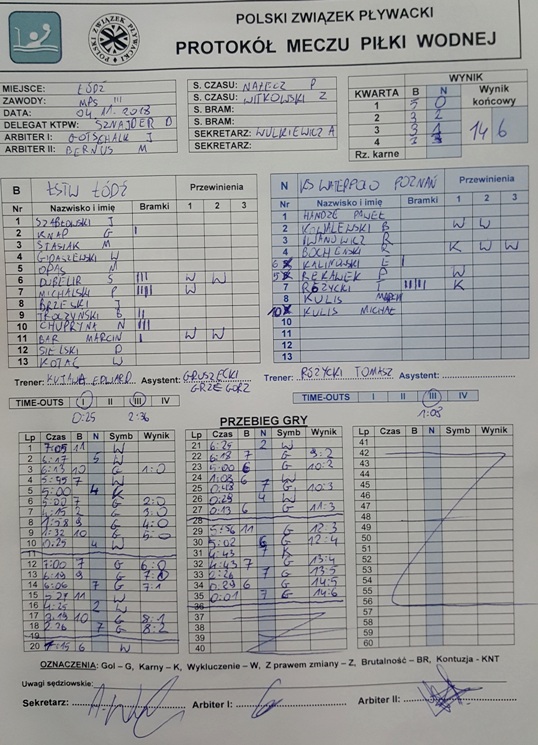 POLSKI ZWIĄZEK PŁYWACKI
POLSKI ZWIĄZEK PŁYWACKI
PROTOKÓŁ MECZU PIŁKI WODNEJ
MIEJSCE: ŁÓDŹ
ZAWODY: MPS III
DATA: 04.11.2018
DELEGAT KTPW: SZNAJDER D
ARBITER I: GOTSCHALK J
ARBITER II: BERNUS M
S. CZASU: NAŁĘCZ P
S. CZASU: WITKOWSKI Z
S. BRAM:
S. BRAM:
SEKRETARZ: WULKIEWICZ A
SEKRETARZ:
WYNIK
KWARTA B N Wynik końcowy
1 5 0
2 3 2
3 3 1
4 3 3
14 6
Rz. karne
B ŁSTW ŁÓDŹ Przewinienia
Nr Nazwisko i imię Bramki 1 2 3
1 SZABŁOWSKI J
2 KNAP G I
3 STASIAK M
4 GIDASZEWSKI W
5 OPAS M
6 DUBELIR S III W W
7 MICHALSKI P W
8 BRZESKI J
9 TROCZYŃSKI B II
10 CHUPRYNA N III
11 BAR MARCIN I W W
12 SIELSKI D
13 KOTAŚ W
Trener: KUJAWA EDWARD Asystent: GRUSZECKI GRZEGORZ
TIME-OUTS I II III IV
0:25 2:36
N KS WATERPOLO POZNAŃ Przewinienia
Nr Nazwisko i imię Bramki 1 2 3
1 HANDZE PAWEŁ
2 KOWALEWSKI B W W
3 IWANOWICZ R
4 BOCHEŃSKI R K W W
6 KALINOWSKI E I
5 REKAWEK P W
7 RÓŻYCKI T IIIII K
8 KULIS
10 KULIS MICHAŁ
10
11
12
13
Trener: RÓŻYCKI TOMASZ Asystent:
TIME-OUTS I II III IV
1:08
PRZEBIEG GRY
Lp Czas B N Symb Wynik
1 7:05 11 W
2 6:17 5 W
3 6:13 10 G 1:0
4 5:45 7 W
5 5:00 4 K
6 5:00 7 G 2:0
7 4:15 2 G 3:0
8 1:58 9 G 4:0
9 1:32 10 G 5:0
10 0:25 4 W
11
12 7:00 7 G 6:0
13 6:19 9 G 7:0
14 6:06 7 G 7:1
15 5:27 11 W
16 4:25 2 W
17 3:19 10 G 8:1
18 2:36 7 G 8:2
19
20 7:15 6 W
Lp Czas B N Symb Wynik
21 6:25 2 W
22 6:18 7 G 9:2
23 5:00 6 G 10:2
24 1:08 6 W
25 0:48 7 G 10:3
26 0:28 4 W
27 0:13 6 G 11:3
28
29 5:56 11 G 12:3
30 5:02 6 G 12:4
31 4:43 7 K
32 4:43 7 G 13:4
33 2:26 7 G 13:5
34 0:29 6 G 14:5
35 0:01 7 G 14:6
36
37
38
39
40
Lp Czas B N Symb Wynik
41
42
43
44
45
46
47
48
49
50
51
52
53
54
55
56
57
58
59
60
OZNACZENIA: Gol – G, Karny – K, Wykluczenie – W, Z prawem zmiany – Z, Brutalność – BR, Kontuzja - KNT
Uwagi sędziowskie:
Sekretarz: Arbiter I: Arbiter II: